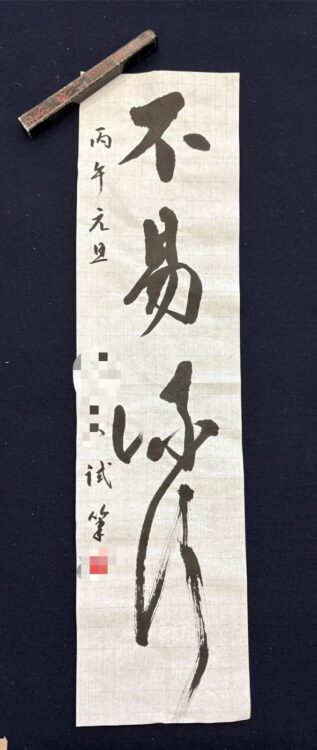 不易流行
丙午元旦
試筆